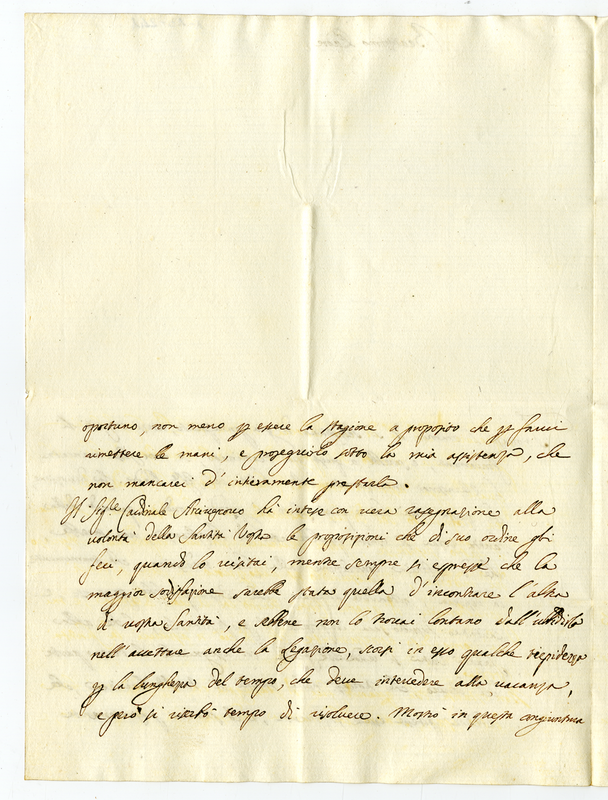 oportuno, non meno p essere la stagione a proposito che p farvi
rimettere le mani, e proseguirlo sotto la mia assistenza, che
non mancarei d'interamente prestarla.
Il Sig.re Cardinale Arcivescovo hà inteso con vera rassegnazione alla
volontà della Santità Vostra le proposizioni che di suo ordine gli
feci, quando lo visitai, mentre sempre si espresse che la
maggior sodisfazione sarebbe stata quella d'incontrare l'alta
di vostra Santità, e sebene non lo trovai lontano dall'ubbidirla
nell'accettare anche la Legazione, scorsi in esso qualche tiepidezza
p la lunghezza del tempo, che deve intercedere alla vacanza,
e però si riserbò tempo di risolvere. Mostrò in questa congiuntura